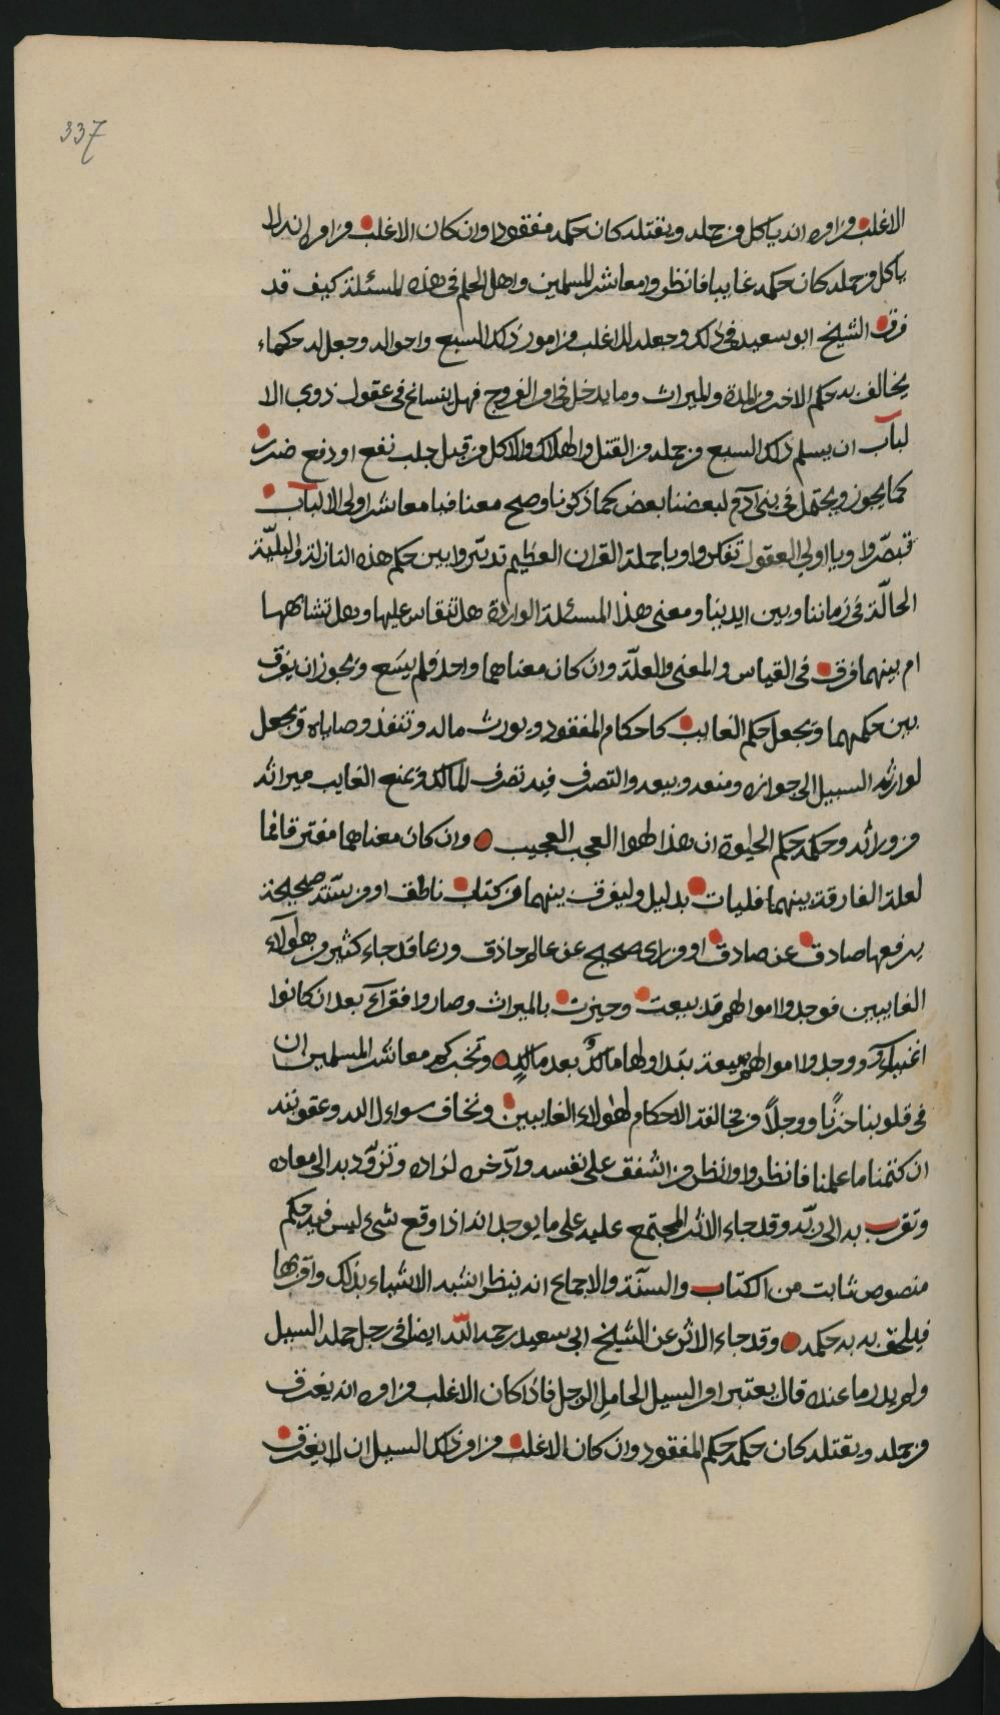 337
الاغلب من امره انه ياكل من حمله ويقتله كان حكمه مفقودا وان كان الاغلب من امره انه لا
ياكل من حمله كان حكمه غايبا فانظروا معاشر المسلمين واهل العلم في هذه المسئلة كيف قد
فرق الشيخ ابو سعيد في ذلك وجعله للاغلب من امور ذلك السبع واحواله وجعل له حكماء
يخالف به حكم الاخر من المدة والميراث وما يدخل في امر الفروج فهل ينساغ في عقول ذوي الا
لباب ان يسلم ذلك السبع من حمله من القتل والهلاك والاكل من قبل جلب نفع او دفع ضرر
كما يجوز ويحتمل في بني آدم لبعضنا بعض كما ذكرنا وصح معنا فيا معاشر اولي الالباب
تبصّروا ويا اولي العقول تفكروا ويا حملة القران العظيم تدبّروا بين حكم هذه النازلة والبليّة
الحالّة في زماننا وبين ايدينا ومعنى هذا المسئلة الواردة هل تنقاس عليها وهل تشابهها
ام بينهما فرق في القياس والمعنى والعلّة وان كان معناهما واحد فلم يسع ويجوز ان يفرق
بين حكمهما ويجعل حكم الغايب كاحكام المفقود ويورث ماله وتنفذ وصاياه ويجعل
لوارثه السبيل الى جوازه ومنعه وبيعه والتصرف فيه تصرف المالك ويمنع الغايب ميراثه
من ورائه وحكمه حكم الحيوة ان هذا لهوا العجب العجيب وان كان معناهما مفترقا فما
لعلة الفارقة بينهما فليات بدليل وليفرق بينهما من كتاب ناطق او من سنّة صحيحة
يرفعها صادق عن صادق او من راى صحيح عن عالم حاذق وربما قد جاء كثير من هولاء
الغايبين فوجدوا اموالهم قد بيعت وحيزت بالميراث وصاروا فقرآء بعد ان كانوا
اغنياء ووجدوا اموالهم مبيعة يتداولها مالك بعد مالك ونخبركم معاشر المسلمين ان
في قلوبنا حزنًا ووجلاً من مخالفة الاحكام لهولاء الغايبين ونخاف سواءل الله وعقوبته
ان كتمنا ما علمنا فانظروا وانظر من اشفق على نفسه وآدخر لزاده وتزوّد به الى معاده
وتقرب به الى ربّه وقد جاء الاثر المجتمع عليه على ما يوجد انه اذا وقع شيء ليس فيه حكم
منصوص ثابت من الكتاب والسنّة والاجماع انه ينظر اشبه الاشباء بذلك واقربها
فيلحق به به حكمه وقد جاء الاثر عن الشيخ ابي سعيد رحمه الله ايضا في رجل حمله السيل
ولم يدر ما عنده قال يعتبر امر السيل الحامل الرجل فاذا كان الاغلب من امره انه يغرق
من حمله ويقتله كان حكمه حكم المفقود وان كان الاغلب من امر ذلك السيل ان لا يغرق